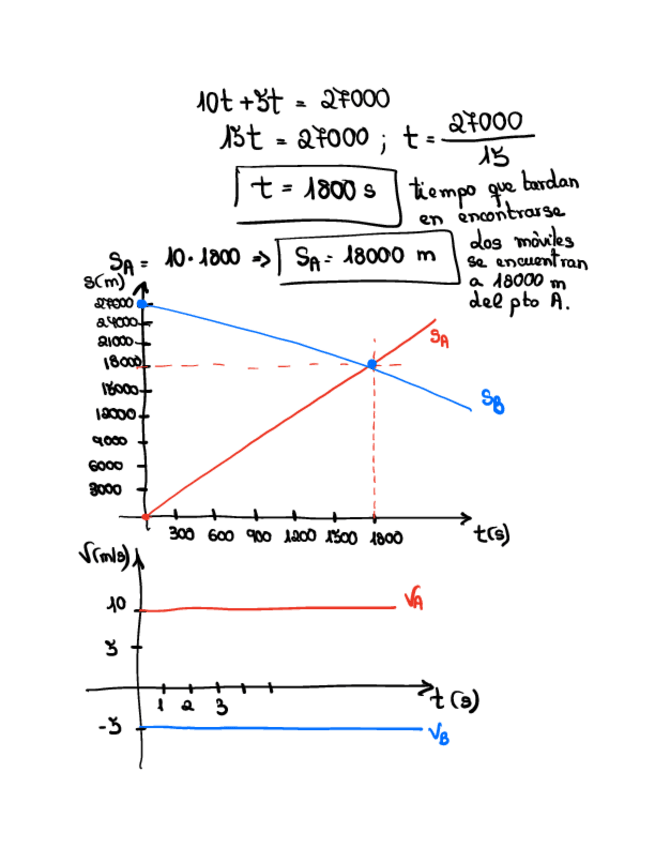 10t + 5t = 27000
15t = 27000 ; t = 27000/15
t = 1800 s
tiempo que tardan
en encontrarse
SA = 10 · 1800 => SA = 18000 m
Los móviles
se encuentran
a 18000 m
del pto A.
s(m)
27000
24000
21000
18000
15000
12000
9000
6000
3000
SA
SB
300 600 900 1200 1500 1800 t(s)
V(m/s)
10
5
-5
VA
1 2 3 t(s)
VB